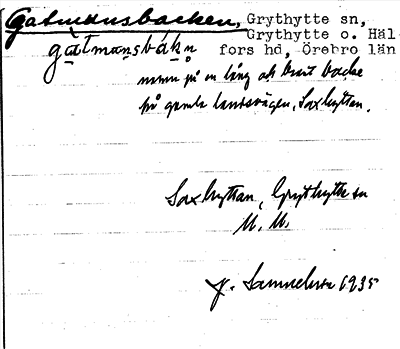 Gatmansbacken, Grythytte sn,
Grythytte o. Häl
gàtmansbákn fors hd, Örebro län
namn på en lång och brant backe
på gamla landsvägen, Saxhyttan.
Saxhyttan, Grythytte sn
U. U.
J. Samuelsson 1935